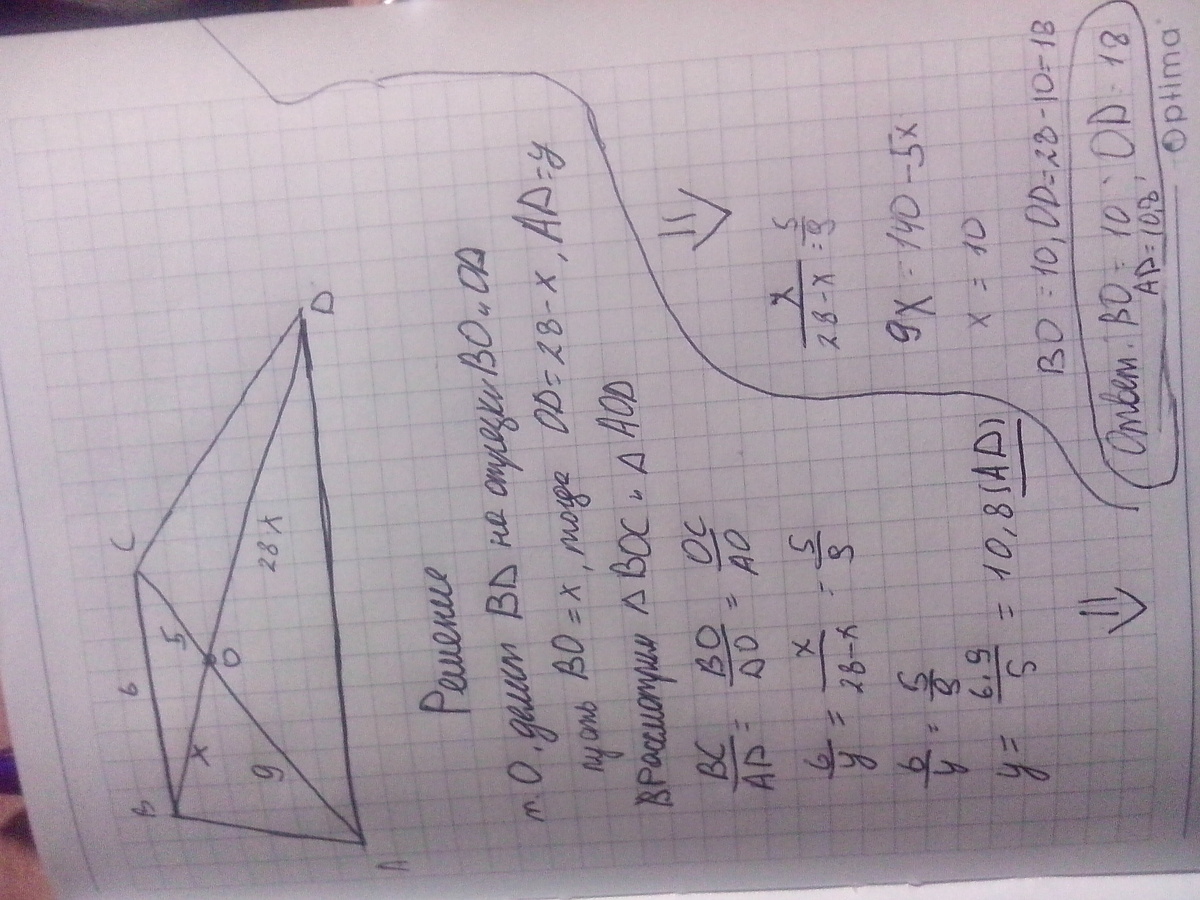 B
6
C
x
5
O
9
28-x
A
D
Решение
т. O. делит BD на отрезки BO и OD
пусть BO = x, тогда OD = 28-x, AD = y
Рассмотрим Δ BOC и Δ AOD
BC/AD = BO/DO = OC/AO
6/y = x/28-x = 5/9
6/y = 5/9
y = 6.9/5 = 10,8 (AD)
⇒
⇒
x/28-x = 5/9
9x = 140 - 5x
x = 10
BO = 10, OD = 28-10 = 18
Ответ. BO = 10; OD = 18
AD = 10,8;
Optima